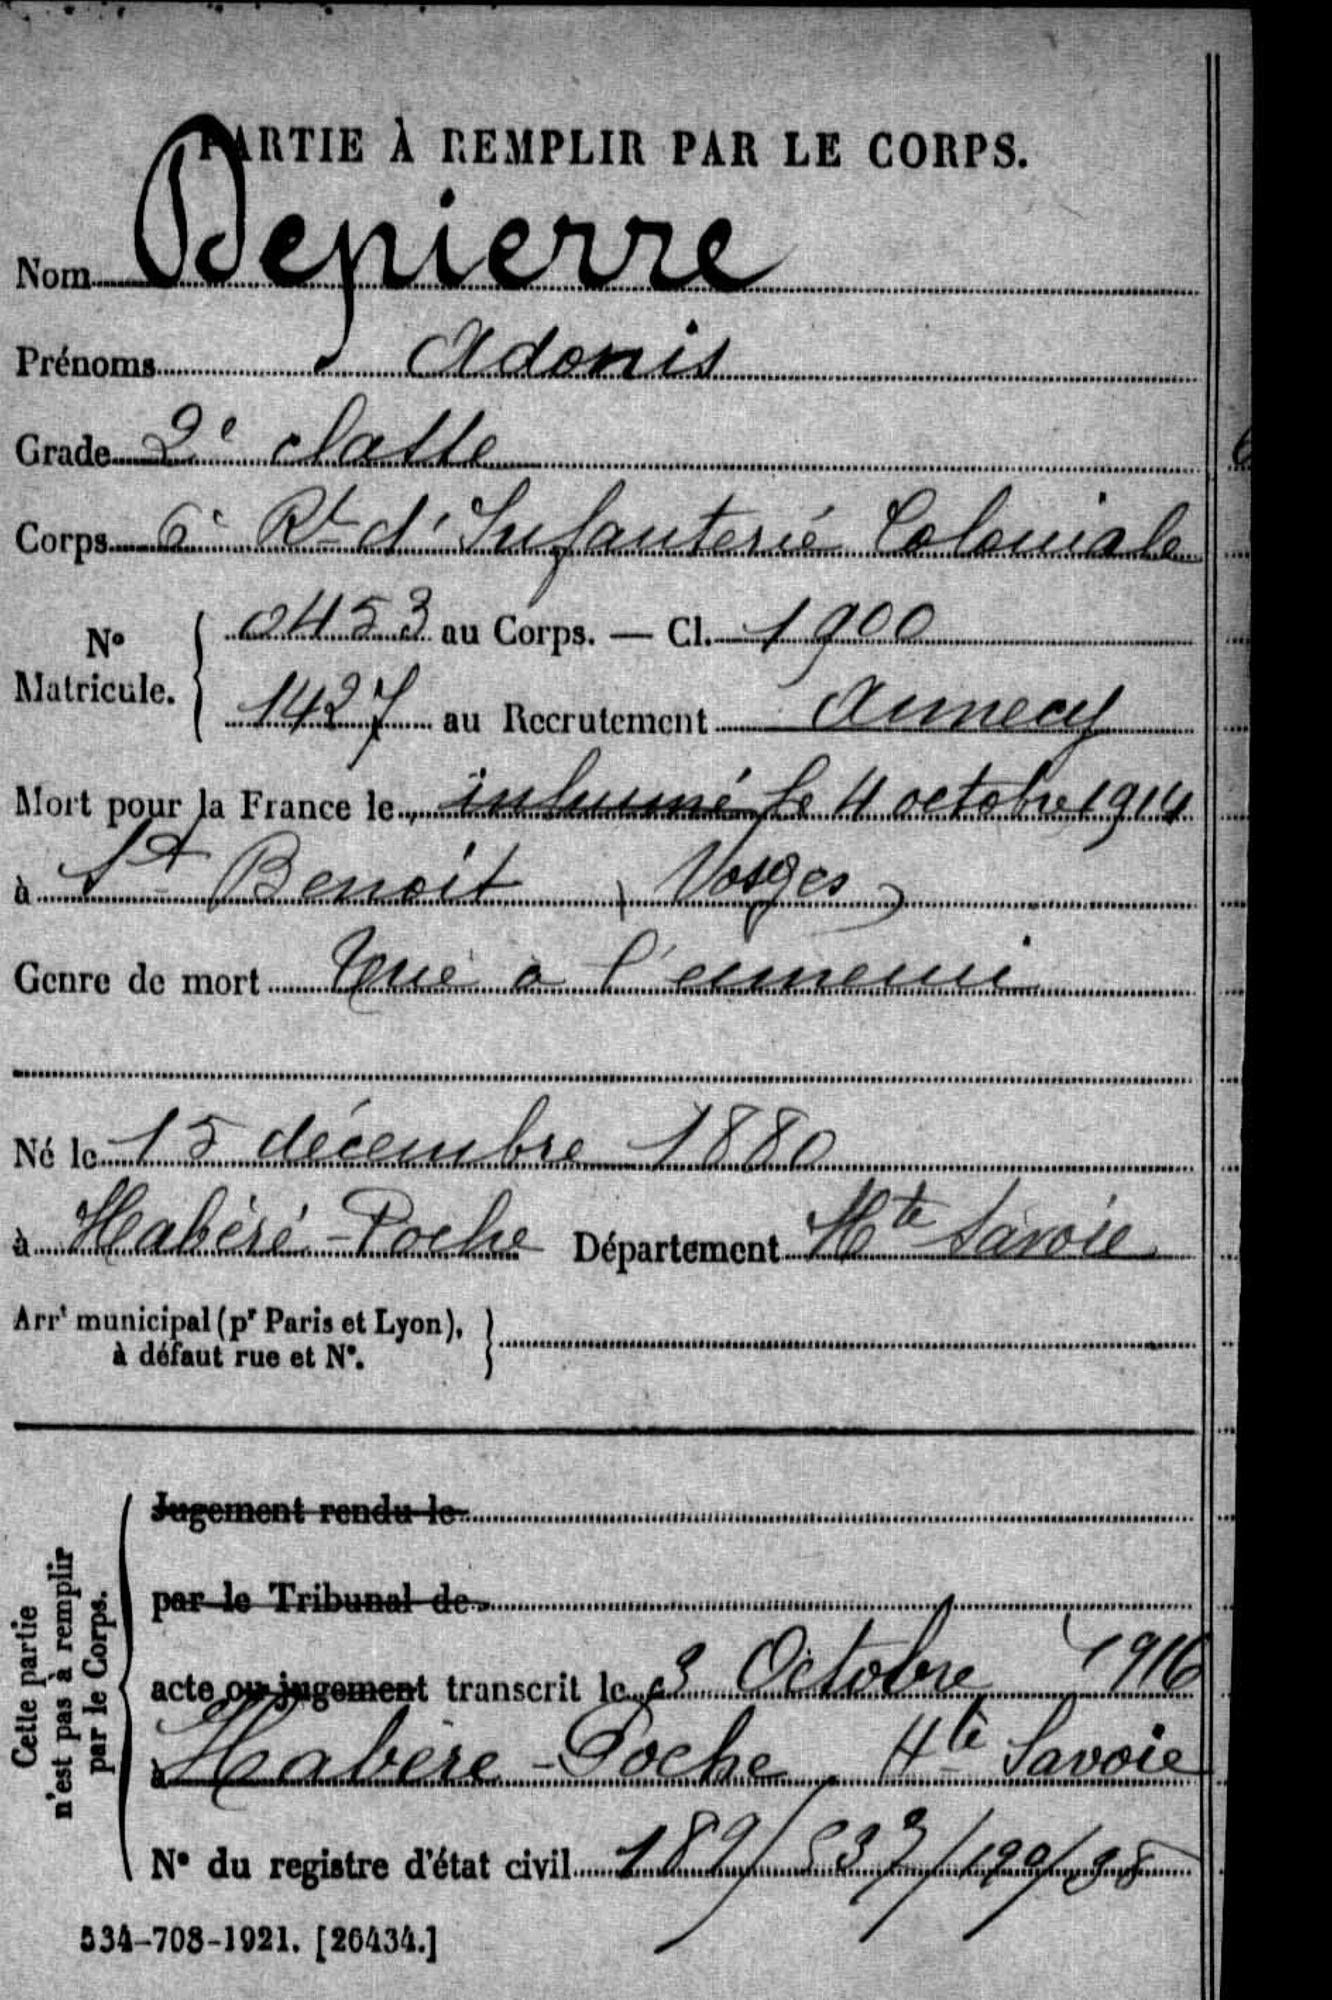 PARTIE À REMPLIR PAR LE CORPS.
Nom Depierre
Prénoms Adonis
Grade 2e classe
Corps 6e Rt d'Infanterie Coloniale
No Matricule. { 0453 au Corps. — Cl. 1900
1427 au Recrutement Annecy
Mort pour la France le inhumé le 4 octobre 1914
à St Benoit ( Vosges )
Genre de mort Tué à l'ennemi
Né le 15 décembre 1880
à Habéré-Poche Département Hte Savoie
Arrt municipal (pr Paris et Lyon), }
à défaut rue et No.
Cette partie
n'est pas à remplir
par le Corps.
Jugement rendu le
par le Tribunal de
acte ou jugement transcrit le 3 Octobre 1916
à Habère-Poche, Hte Savoie
No du registre d'état civil 189/
534-708-1921. [26434.]